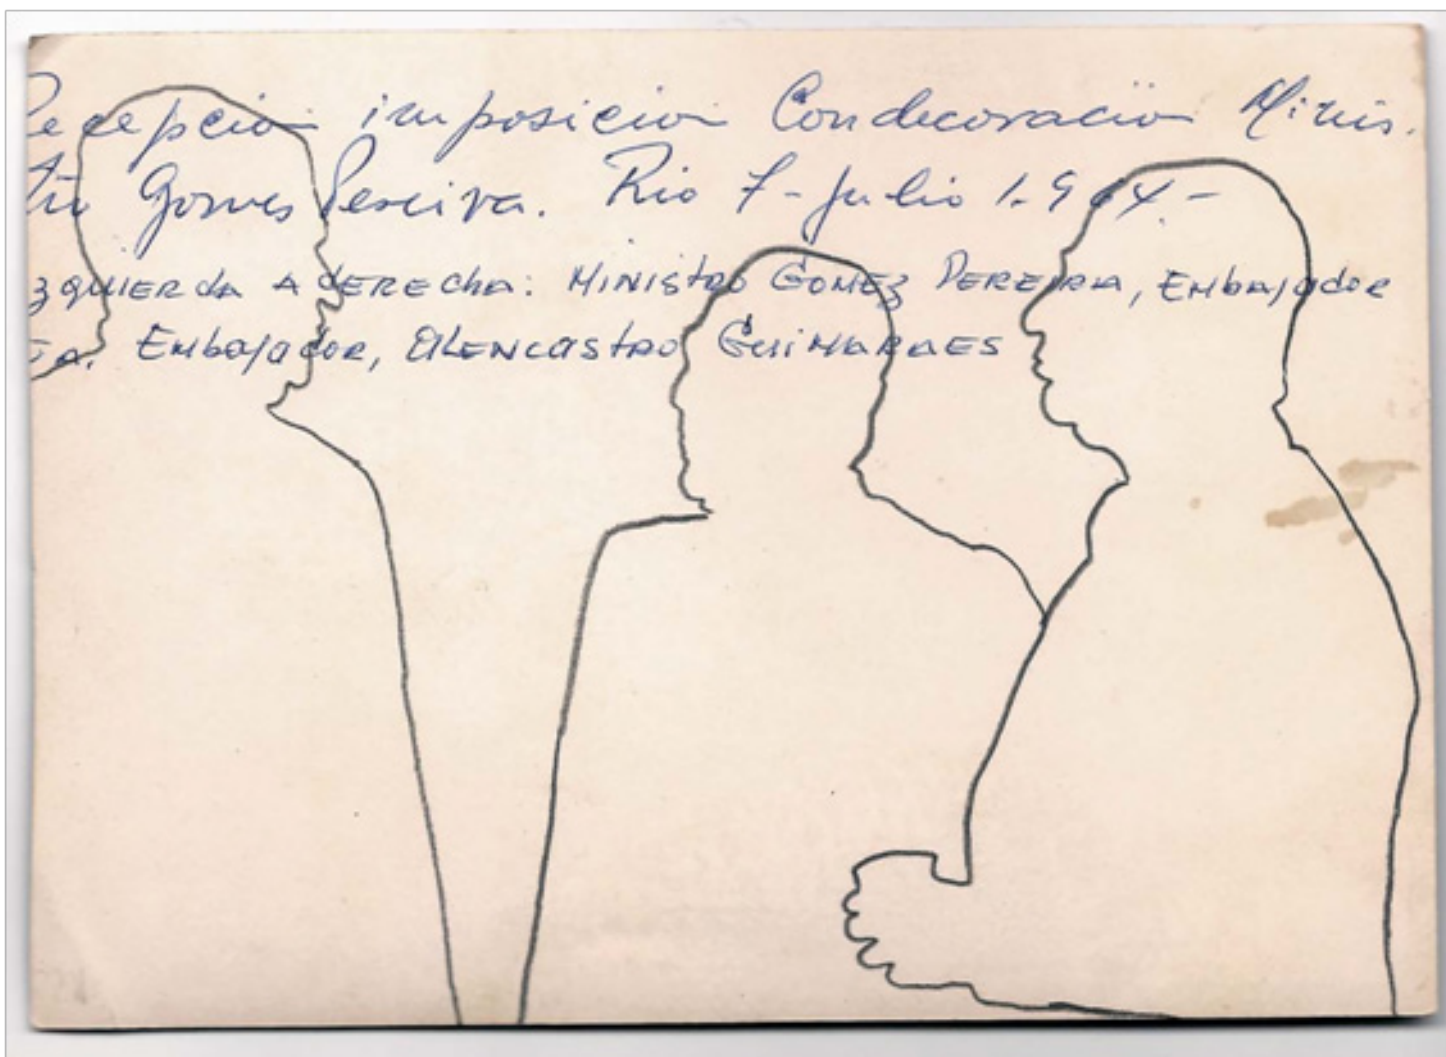 Recepcion imposicion Condecoración Minis.
tro Gomes Pereira. Rio 7-Julio 1.964.-
zquierda a derecha: Ministro Gomez Pereira, Embajador
Embajador, Alencastro Guimaraes